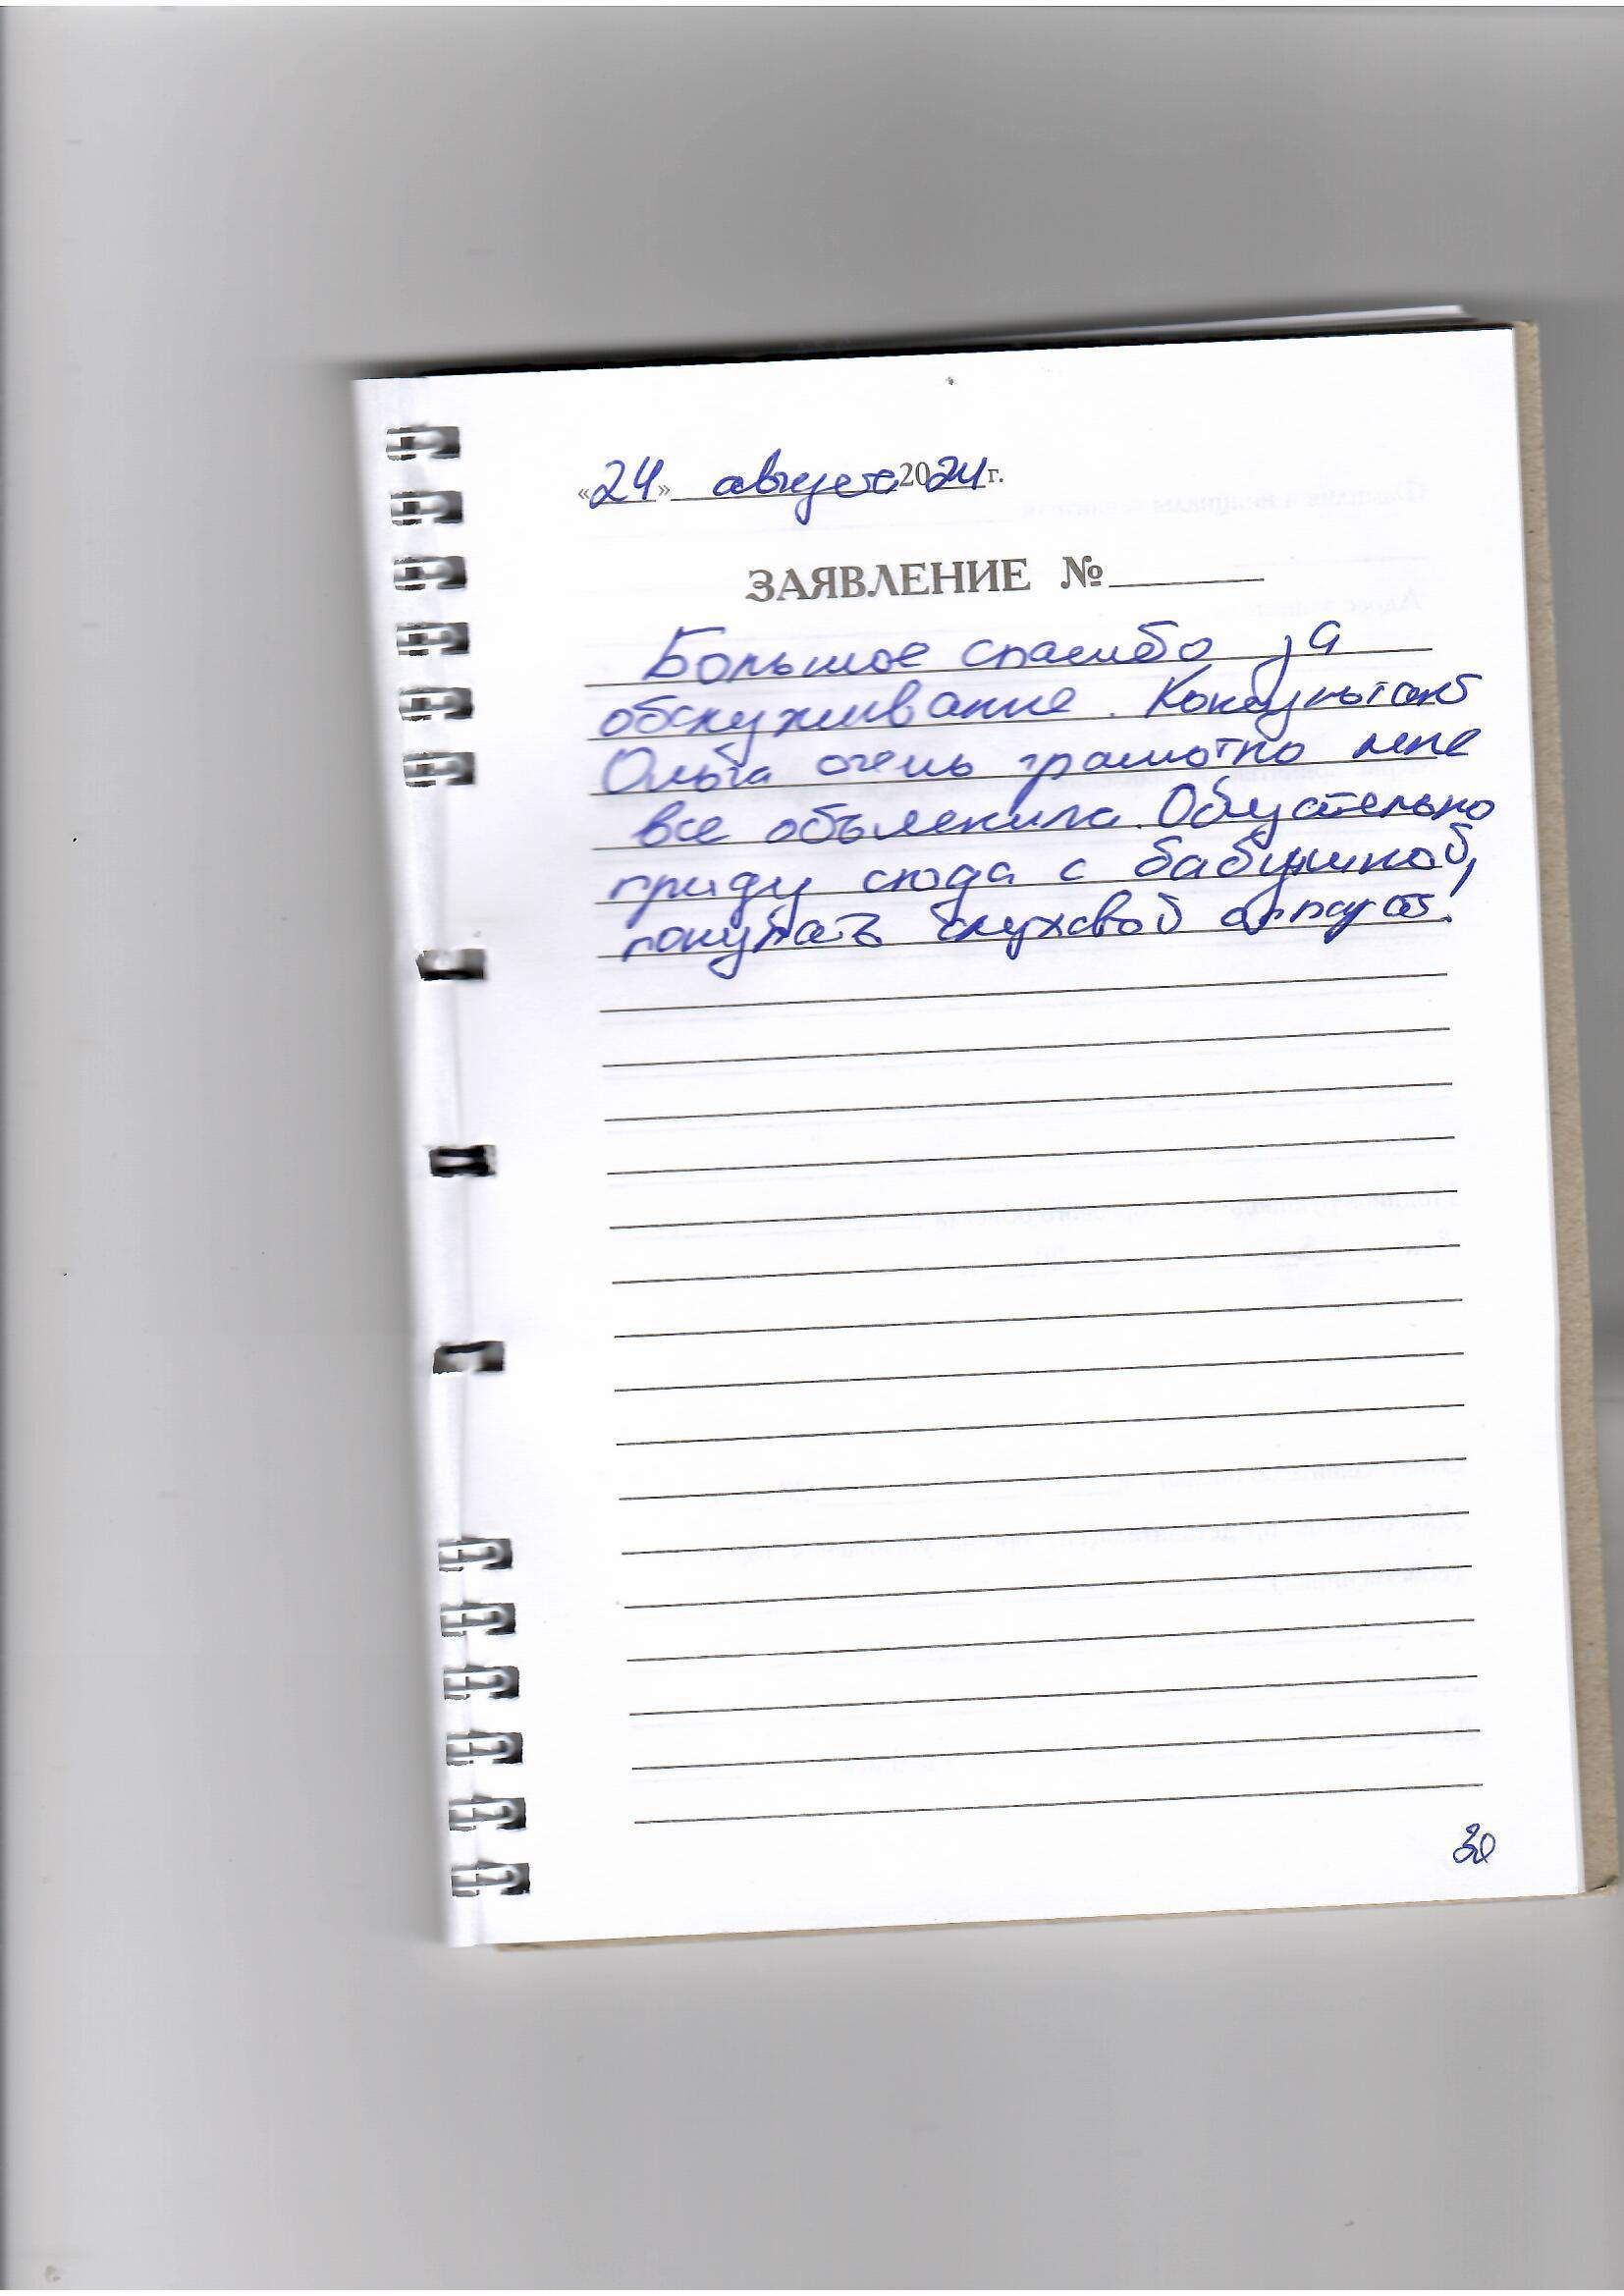 «24» августа 2024г.
ЗАЯВЛЕНИЕ №
Большое спасибо за
обслуживание. Консультант
Ольга очень грамотно мне
все объяснила. Обязательно
приду сюда с бабушкой,
покупать слуховой аппарат.
30